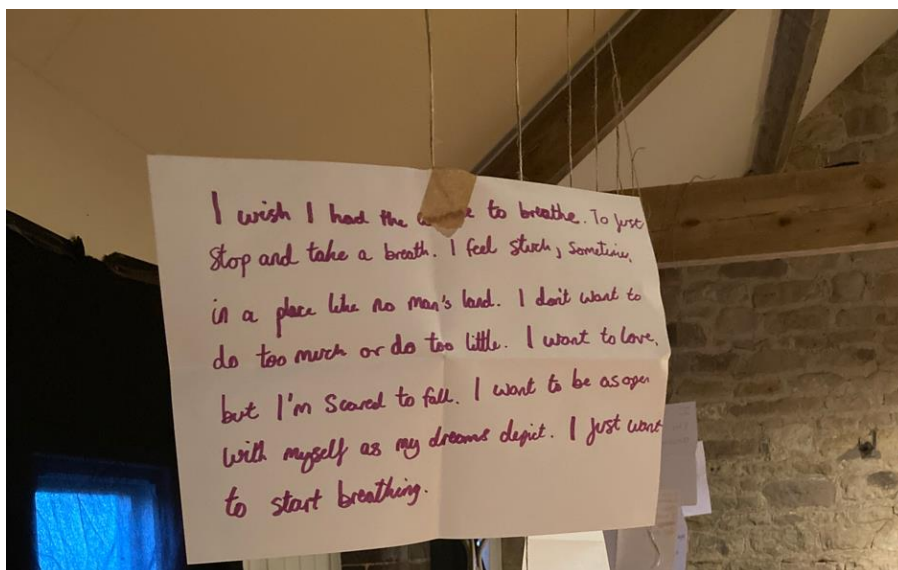 I wish I had the to breathe. To just
stop and take a breath. I feel stuck, sometimes,
in a place like no man's land. I don't want to
do too much or do too little. I want to love,
but I'm scared to fall. I want to be as open
with myself as my dreams depict. I just want
to start breathing.